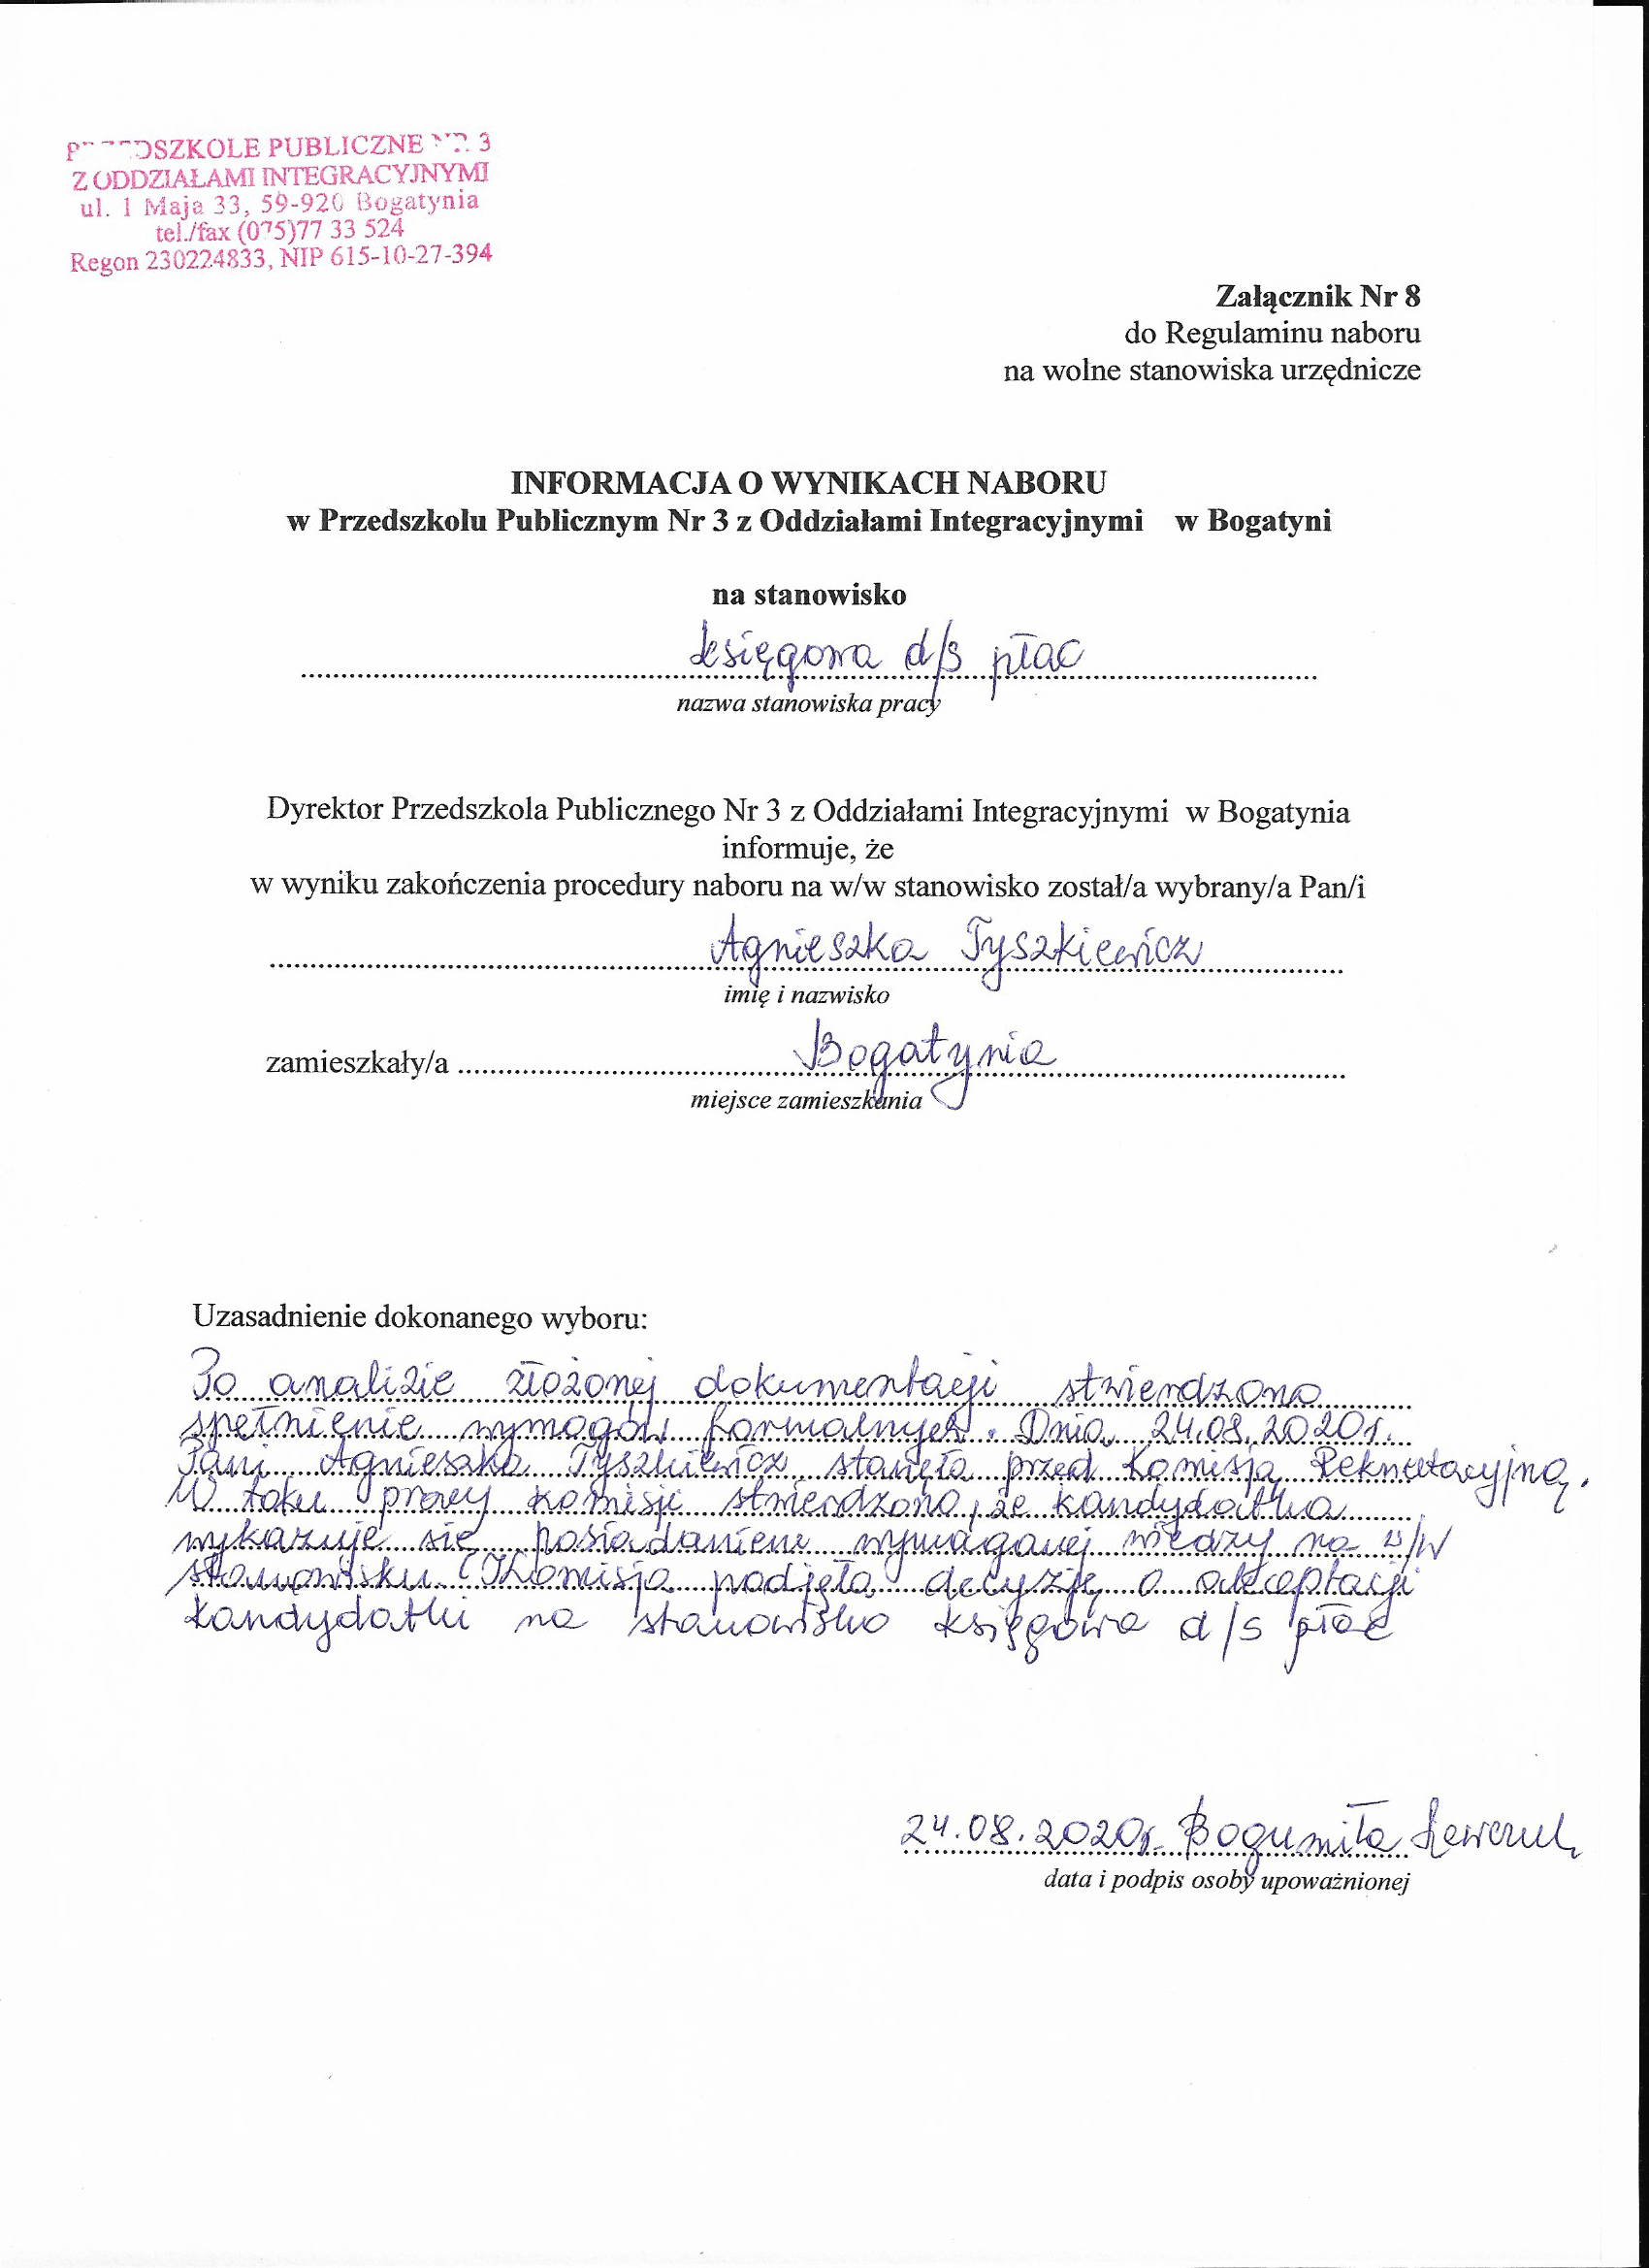 PRZEDSZKOLE PUBLICZNE NR 3
Z ODDZIAŁAMI INTEGRACYJNYMI
ul. 1 Maja 33, 59-920 Bogatynia
tel./fax (075)77 33 524
Regon 230224833, NIP 615-10-27-394
Załącznik Nr 8
do Regulaminu naboru
na wolne stanowiska urzędnicze
INFORMACJA O WYNIKACH NABORU
w Przedszkolu Publicznym Nr 3 z Oddziałami Integracyjnymi w Bogatyni
na stanowisko
księgowa d/s płac
nazwa stanowiska pracy
Dyrektor Przedszkola Publicznego Nr 3 z Oddziałami Integracyjnymi w Bogatynia
informuje, że
w wyniku zakończenia procedury naboru na w/w stanowisko został/a wybrany/a Pan/i
Agnieszka Tyszkiewicz
imię i nazwisko
zamieszkały/a Bogatynia
miejsce zamieszkania
Uzasadnienie dokonanego wyboru:
Po analizie złożonej dokumentacji stwierdzono
spełnienie wymogów formalnych. Dnia 24.08.2020r.
Pani Agnieszka Tyszkiewicz stanęła przed Komisją Rekrutacyjną.
W toku pracy komisji stwierdzono, że kandydatka
wykazuje się posiadaniem wymaganej wiedzy na w/w
stanowisku. Komisja podjęła decyzję o akceptacji
kandydatki na stanowisko księgowa d/s płac
24.08.2020r. Bogumiła
data i podpis osoby upoważnionej